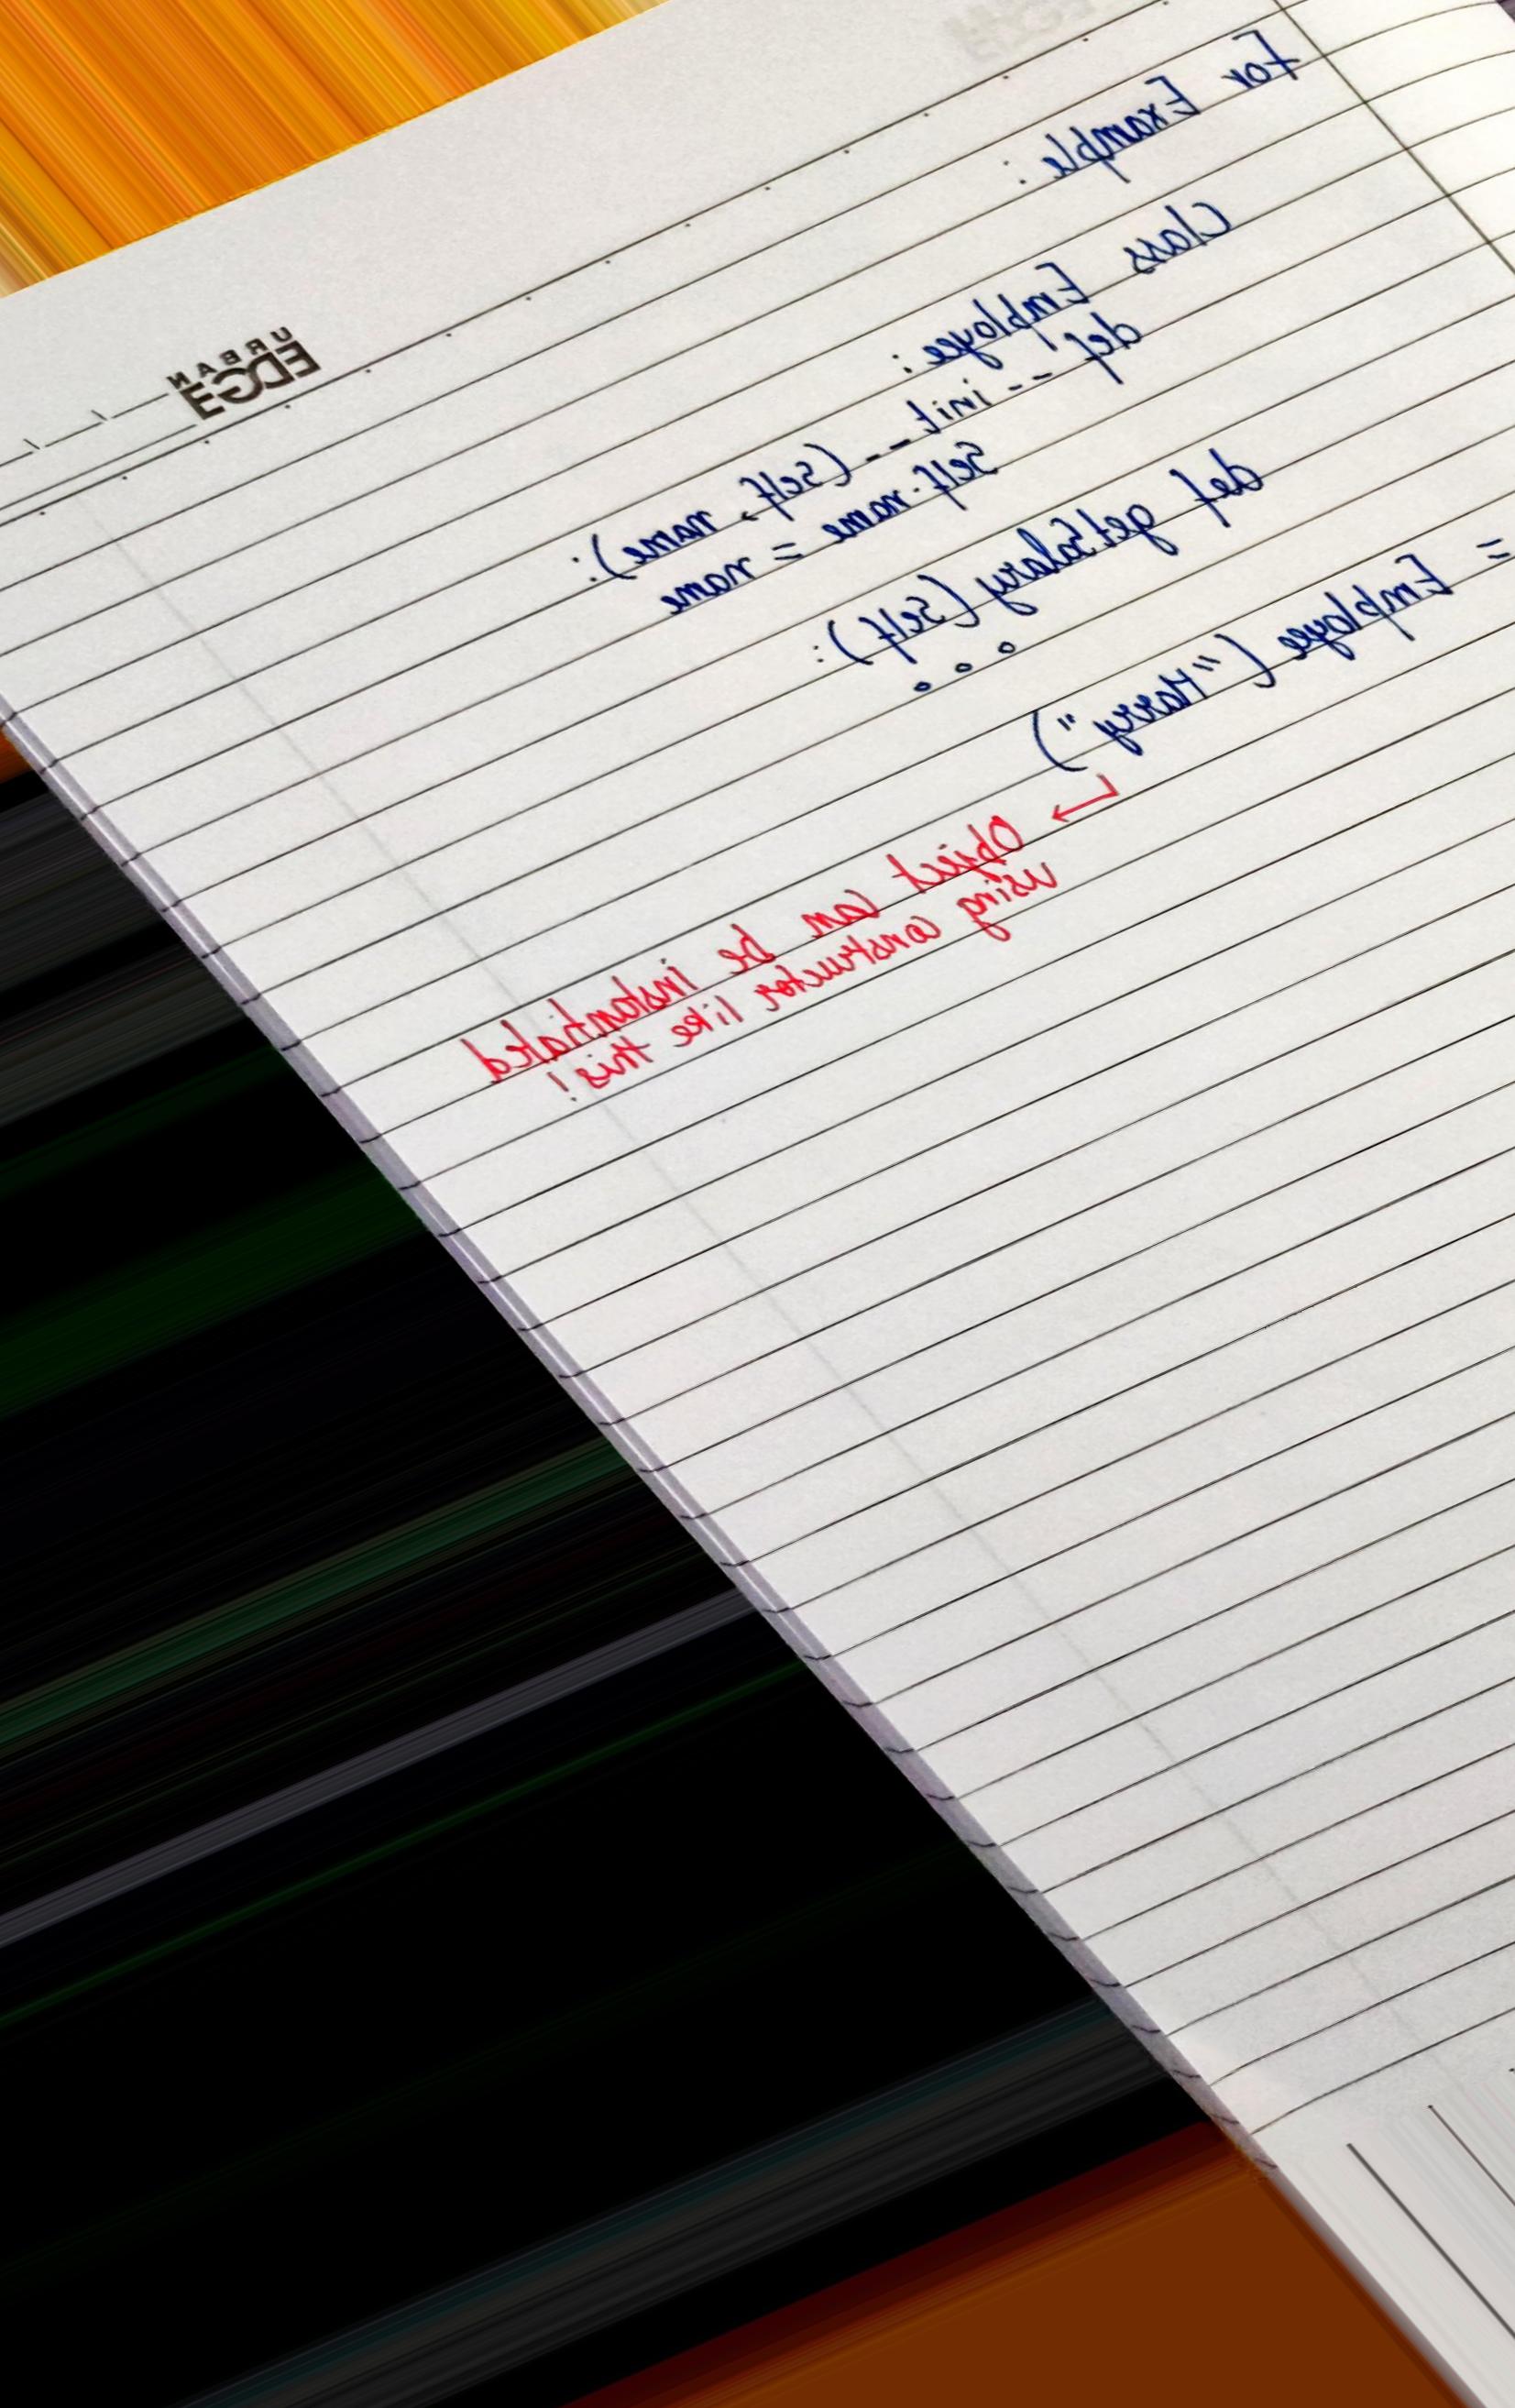 URBAN
EDGE
For Example :
Class Employee :
def __init__ (self, name) :
self.name = name
def getSalary (self) :
. . .
= Employee ("Harry")
↳ Object can be instantiated
using constructor like this !